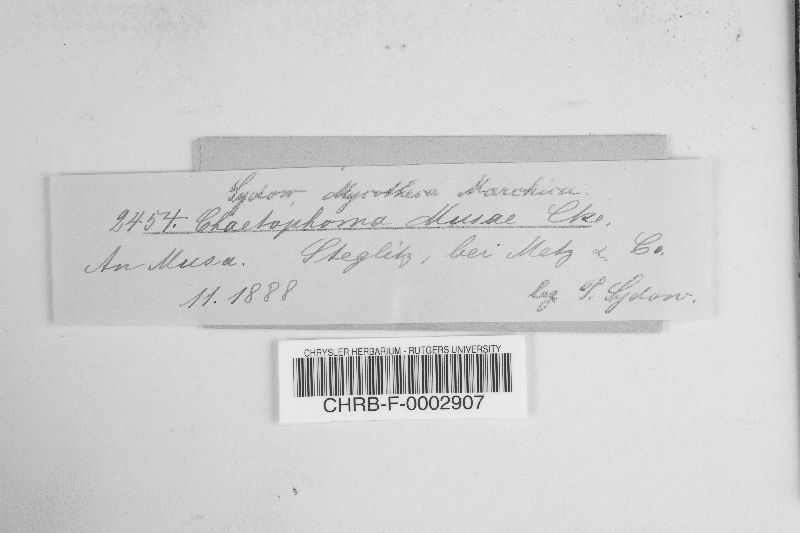 Sydow, Mycotheca Marchica.
2454. Chaetophoma Musae Cke.
An Musa. Steglitz, bei Metz & Co.
11. 1888 leg P. Sydow.
CHRYSLER HERBARIUM - RUTGERS UNIVERSITY
CHRB-F-0002907